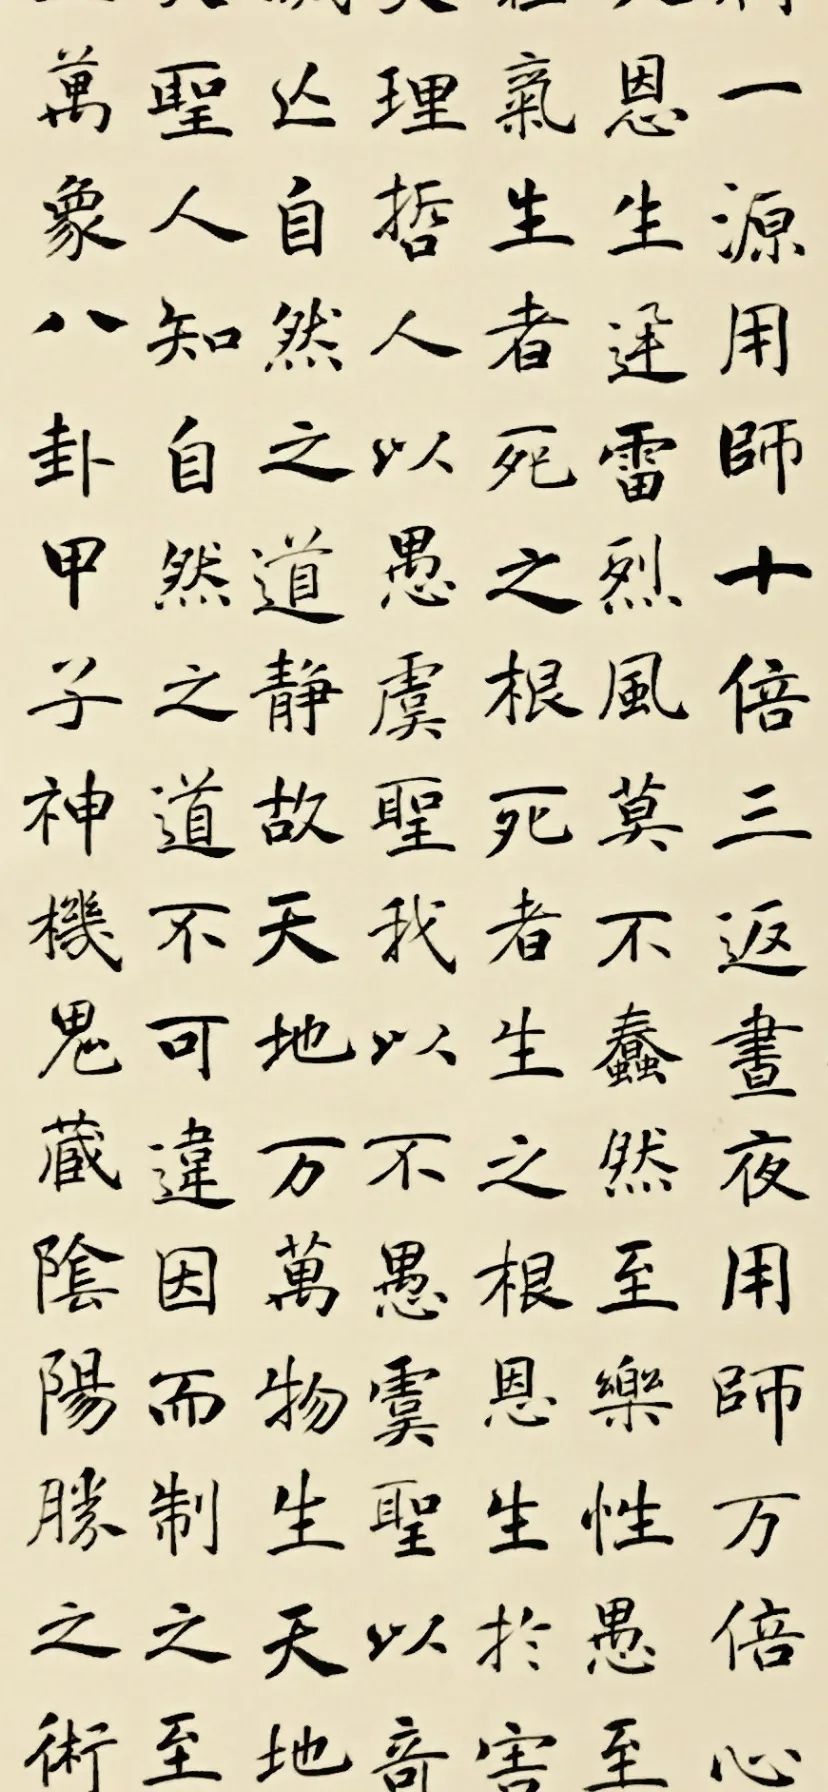 一源用師十倍三返晝夜用師万倍心
恩生迅雷烈風莫不蠢然至樂性愚至
氣生者死之根死者生之根恩生於害
理哲人以愚虞聖我以不愚虞聖以奇
亾自然之道静故天地万萬物生天地
聖人知自然之道不可違因而制之至
萬象八卦甲子神機鬼藏陰陽勝之術